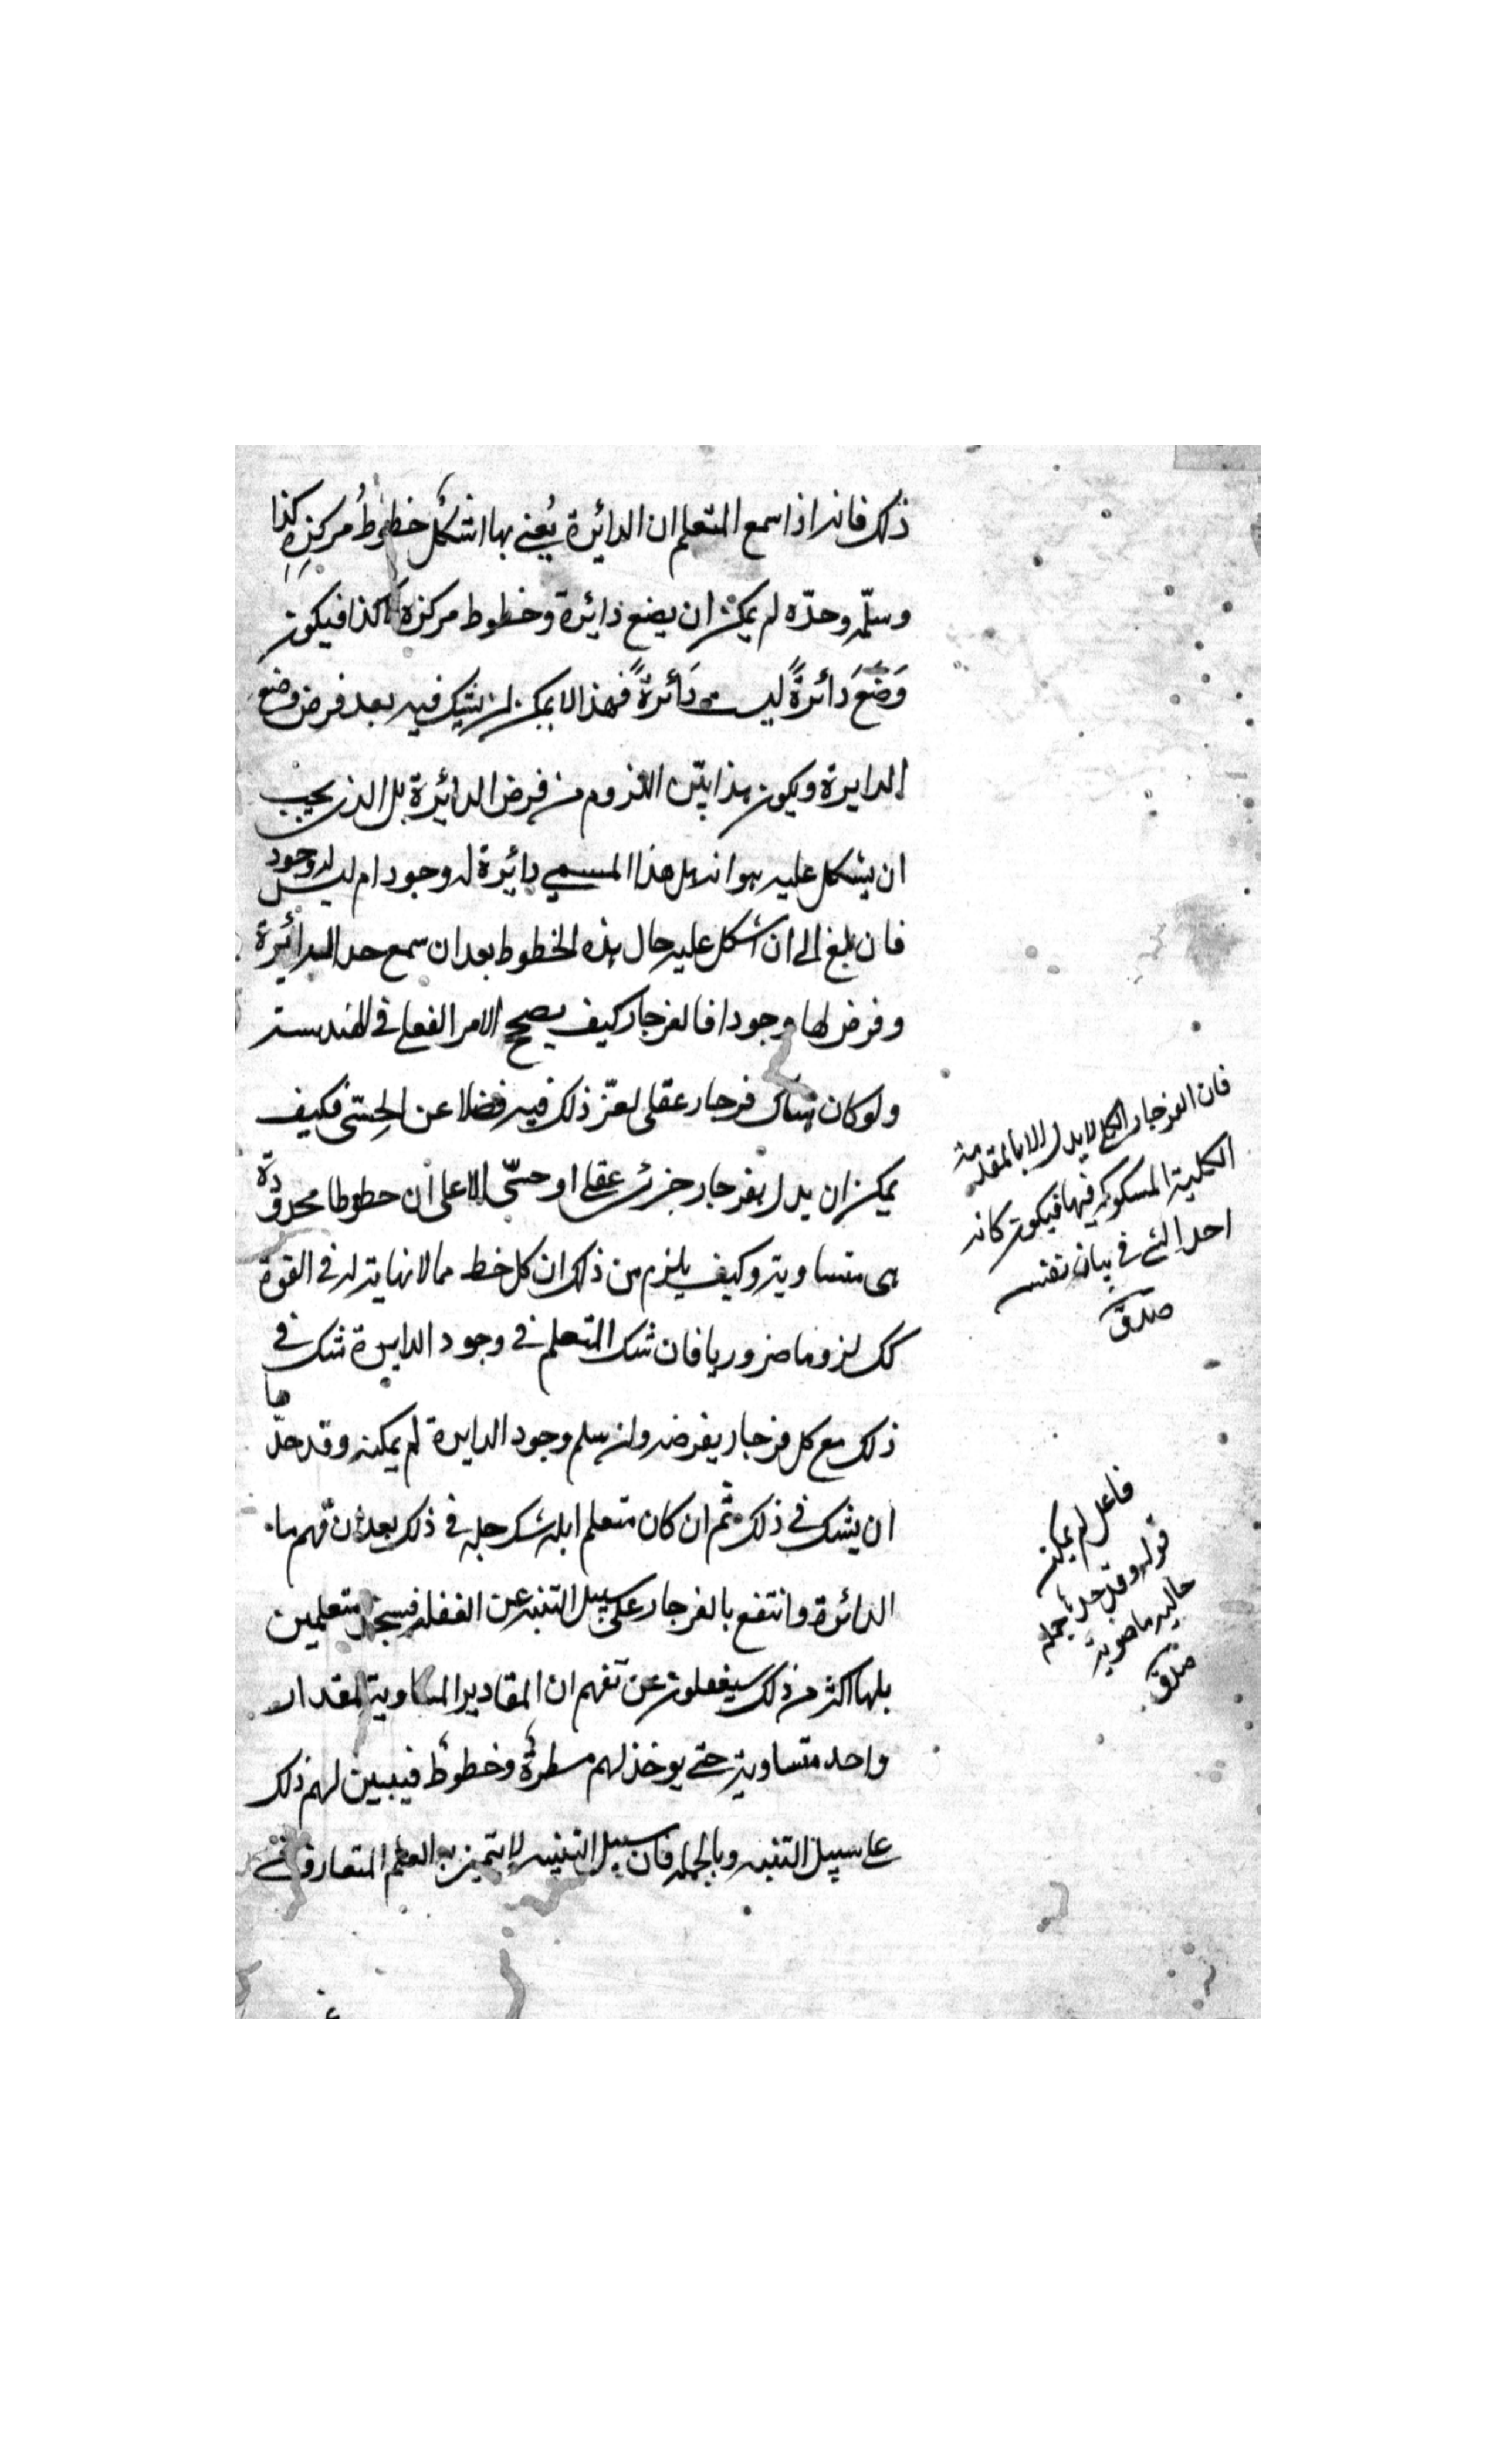 ذلك فانه اذا سمع المتعلم ان الدائرة يُعنى بها شكل خطوطُ مركزِهِ كذا
وسلّمه وحدّه لم يمكن ان يضع دائرة وخطوط مركزه لا كذا فيكون
وَضَعَ دائرةً ليست دَائرةً فهذا لا يمكن ان يشك فيه بعد فرض وضع
الدايرة ويكون هذا بيّن اللزوم من فرض الدائرة بل الذى يجب
ان يشكل عليه هو انه هل هذا المسمى دائرة له وجود ام ليس له وجود
فان بلغ الى ان اشكل عليه حال هذه الخطوط بعد ان سمع حد الدائرة
وفرض لها وجودا فالفرجار كيف يصحح الامر الفعلى فى الهندسة
ولو كان هناك فرجار عقلى لعزّ ذلك فيه فضلا عن الحِسّى فكيف
يمكن ان يدل بفرجار جزئى عقلى او حسّى الا على ان خطوطا محدودة
هى متساوية وكيف يلزم من ذلك ان كل خط مما لا نهاية له فى القوة
كك لزوما ضروريا فان شك المتعلم فى وجود الدايرة شك فى
ذلك مع كل فرجار يفرضه وان سلم وجود الدايرة لم يمكنه وقد حدّها
ان يشك فى ذلك ثم ان كان متعلم ابله شك رجله فى ذلك بعد ان فهم ما
الدائرة وانتفع بالفرجار على سبيل التنبه عن الغفلة فسيجد متعلمين
بلها اكثر من ذلك سيغفلون عن تفهم ان المقادير المساوية لمقدار
واحد متساوية حتى يوخذ لهم مسطرة وخطوط فيبين لهم ذلك
على سبيل التنبه وبالجملة فان سبيل التنبيه لا يتميز به العلم المتعارف
فان الفرجار الكلى لا يدل الا بالمقدمة
الكلية المسكوكة فيها فيكون كانه
احد الشئ فى بيان نفسه
صدق
فاعل لم يمكنه
قوله وقد حدها جملة
حالية ماضوية
صدق